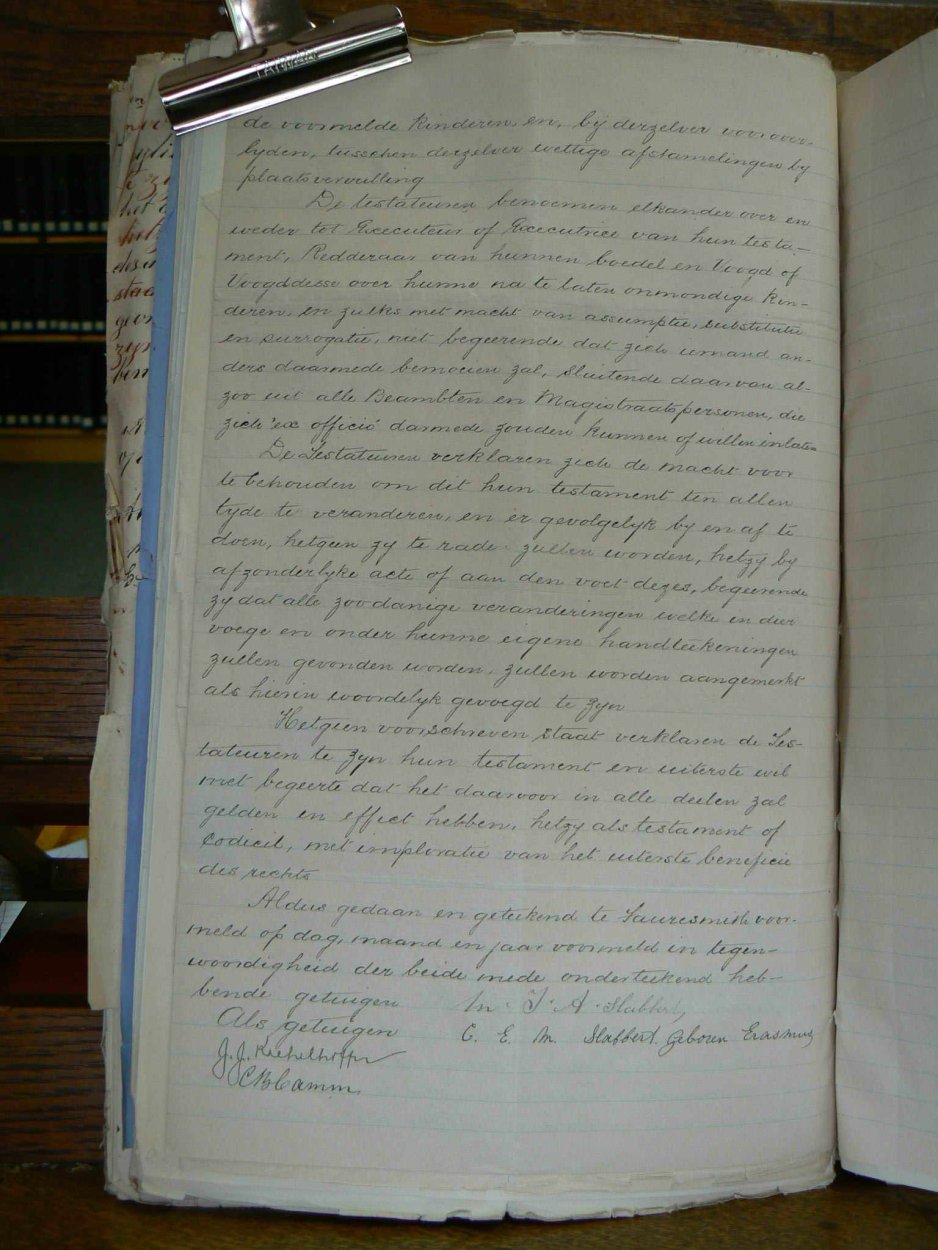 de voormelde kinderen en, bij derzelver voorover-
lyden, tusschen derzelver wettige afstamelingen by
plaatsvervulling
De testateuren benoemen elkander over en
weder tot Executeur of Executrice van hun testa-
ment, Redderaar van hunnen boedel en Voogd of
Voogddesse over hunne na te laten onmondige kin-
deren, en zulks met macht van assumptie, substitutie
en surrogatie, niet begeerende dat zich iemand an-
ders daarmede bemoeien zal, sluitende daarvan al-
zoo uit alle Beambten en Magistraatspersonen, die
zich 'ex officio' darmede zouden kunnen of willen inlaten
De Testateuren verklaren zich de macht voor
te behouden om dit hun testament ten allen
tyde te veranderen, en er gevolgelyk by en af te
doen, hetgeen zy te rade zullen worden, hetzy by
afzonderlyke acte of aan den voet dezes, begeerende
zy dat alle zoodanige veranderingen welke in dier
voege en onder hunne eigene handteekeningen
zullen gevonden worden, zullen worden aangemerkt
als hierin woordelyk gevoegd te zyn
Hetgeen voorschreven staat verklaren de Tes-
tateuren te zyn hun testament en uiterste wil
met begeerte dat het daarvoor in alle deelen zal
gelden en effect hebben, hetzy als testament of
Codicil, met imploratie van het uiterste beneficie
des rechts
Aldus gedaan en geteekend te Fauresmith voor-
meld op dag, maand en jaar voormeld in tegen-
woordigheid der beide mede onderteekend heb-
bende getuigen
M. J. A. Slabbert
Als getuigen
C. E. M. Slabbert Geboren Erasmus
J. J.